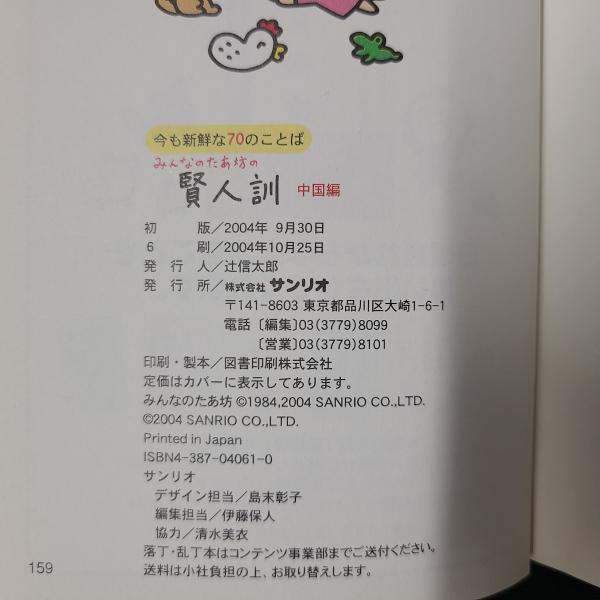 今も新鮮な70のことば
みんなのたあ坊の
賢人訓 中国編
初 版/2004年 9月30日
6 刷/2004年10月25日
発 行 人/辻信太郎
発 行 所/株式会社 サンリオ
〒141-8603 東京都品川区大崎1-6-1
電話〔編集〕03(3779)8099
〔営業〕03(3779)8101
印刷・製本/図書印刷株式会社
定価はカバーに表示してあります。
みんなのたあ坊 ©1984,2004 SANRIO CO.,LTD.
©2004 SANRIO CO.,LTD.
Printed in Japan
ISBN4-387-04061-0
サンリオ
デザイン担当/島末彰子
編集担当/伊藤保人
協力/清水美衣
落丁・乱丁本はコンテンツ事業部までご送付ください。
送料は小社負担の上、お取り替えします。
159